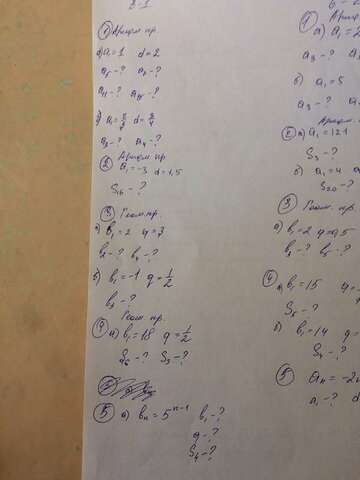 В-1
① Арифм. пр.
а) a₁ = 1 d = 2
a₅ - ? a₇ - ?
a₁₁ - ? a₁₅ - ?
d = 3/4
a₃ - ? a₄ - ?
② Арифм. пр
a₁ = -3 d = 1,5
S₁₆ - ?
③ Геом. пр.
а) b₁ = 2 q = 3
b₄ - ?
б) b₁ = -1 q = 1/2
Геом. пр.
④ а) b₁ = 18 q = 1/2
S₆ - ? S₃ - ?
⑤ а) bₙ = 5ⁿ⁻¹ b₁ - ?
q - ?
S₄ - ?
①
а) a₁ =
a₃ - ?
б) a₁ = 5
a₃ - ?
② а) a₁ = 121
S₃ - ?
б) a₁ = 4
S₂₀ - ?
③ Геом. п
а) b₁ = 2 q = 0,5
b₅ - ?
④ а) b₁ = 15 q =
S₅ - ?
б) b₁ = 14 q =
⑤ aₙ = -2
a₁ - ? d